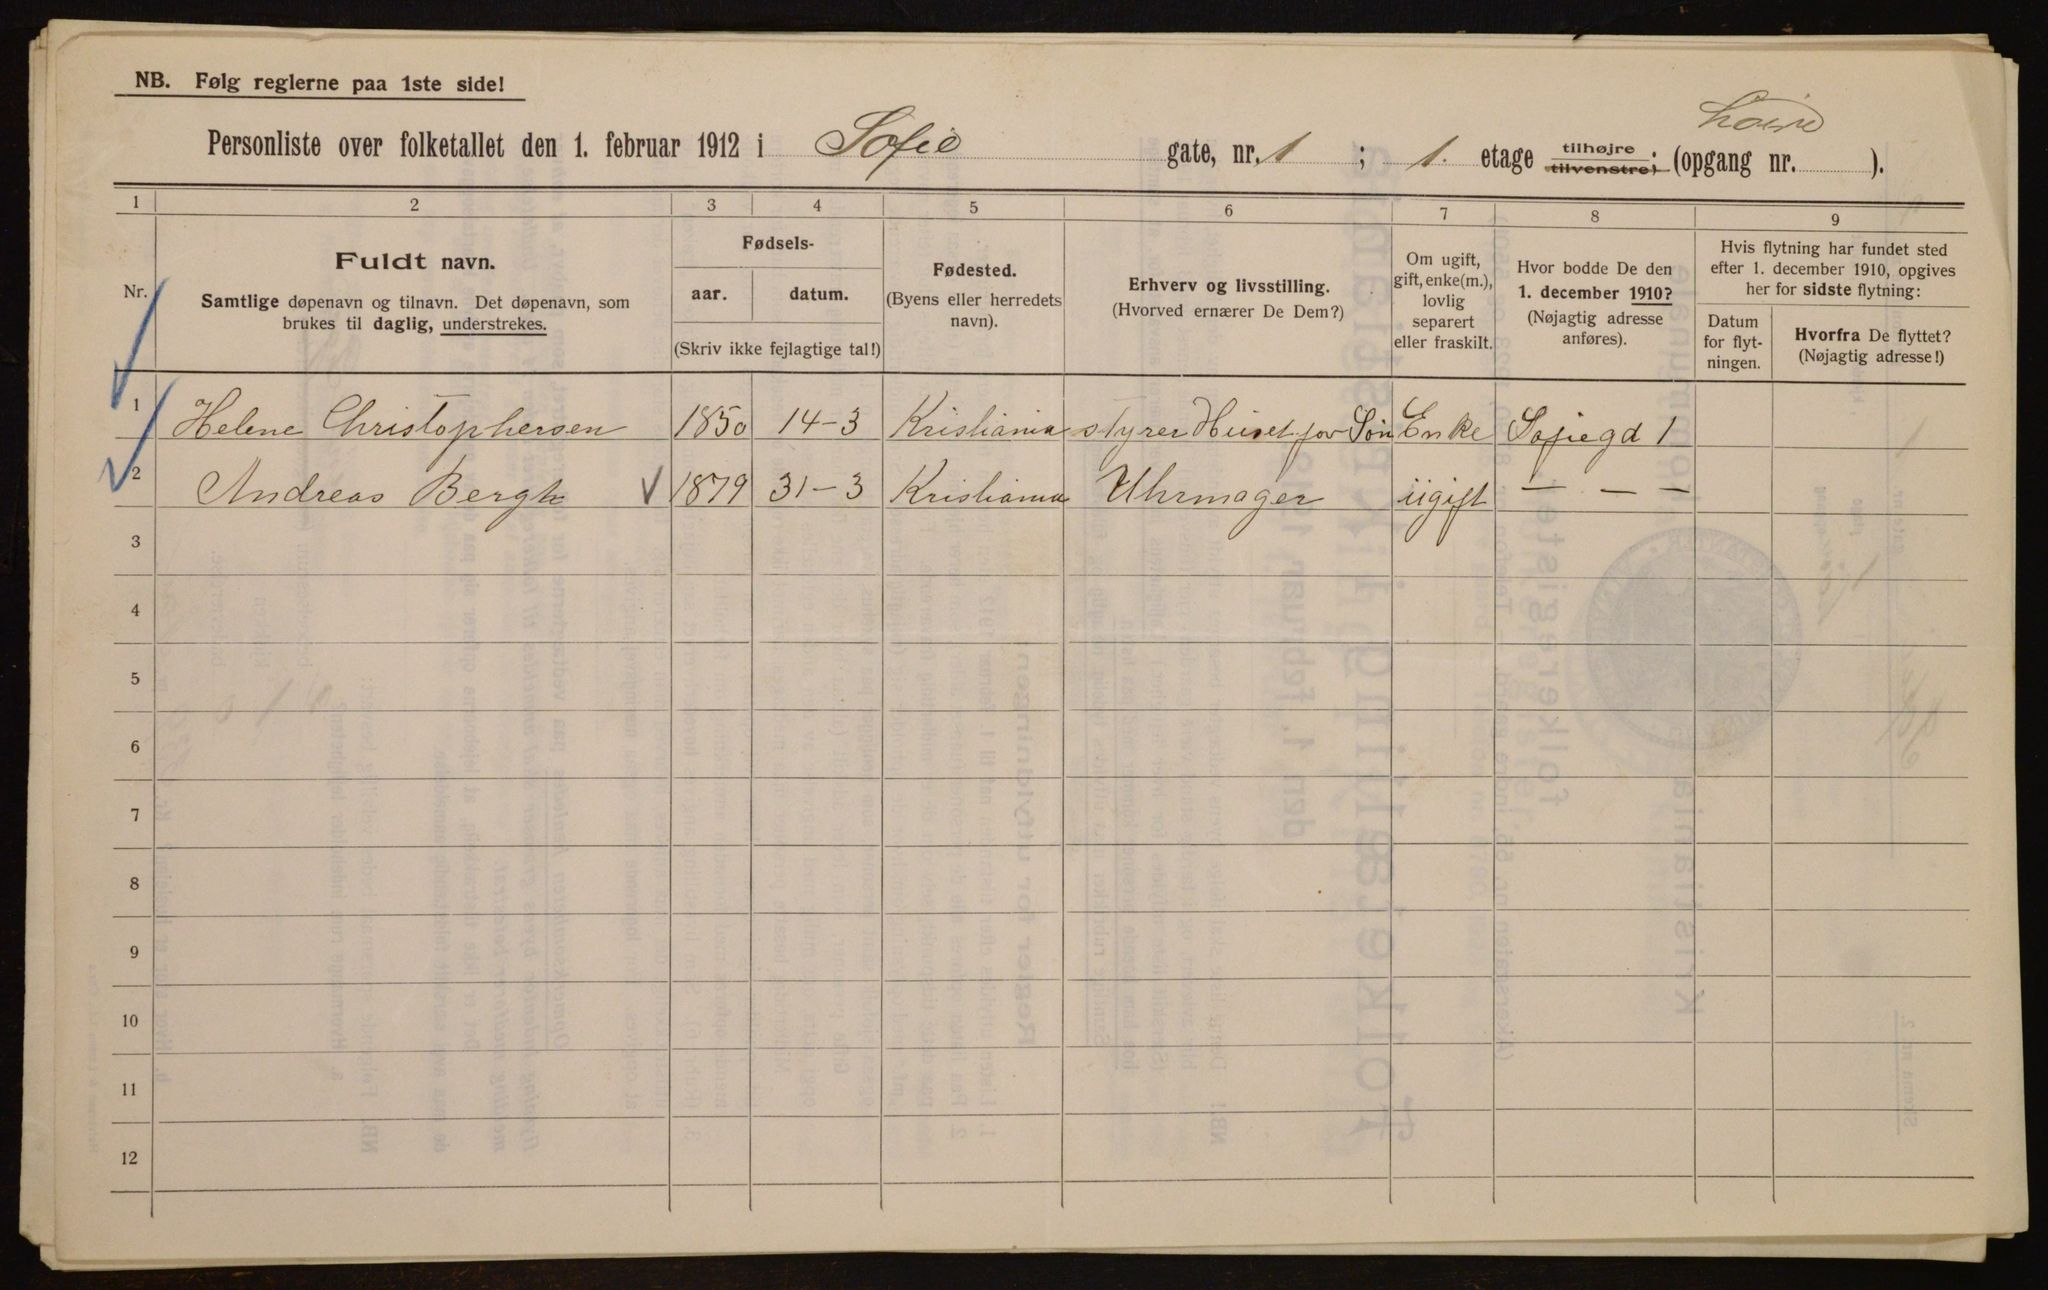 NB. Følg reglerne paa 1ste side!
Personliste over folketallet den 1. februar 1912 i Sofie gate, nr. 1 ; 1. etage tilhøjre tilvenstre; (opgang nr. ).
1 2 3 4 5 6 7 8 9
Nr.
Fuldt navn.
Samtlige døpenavn og tilnavn. Det døpenavn, som
brukes til daglig, understrekes.
Fødsels-
aar. datum.
(Skriv ikke fejlagtige tal!)
Fødested.
(Byens eller herredets
navn).
Erhverv og livsstilling.
(Hvorved ernærer De Dem?)
Om ugift,
gift, enke(m.),
lovlig
separert
eller fraskilt.
Hvor bodde De den
1. december 1910?
(Nøjagtig adresse
anføres).
Hvis flytning har fundet sted
efter 1. december 1910, opgives
her for sidste flytning:
Datum
for flyt-
ningen.
Hvorfra De flyttet?
(Nøjagtig adresse!)
1 Helene Christophersen 1850 14-3 Kristiania styrer Huset for Søn Enke Sofiegd 1
2 Andreas Bergh 1879 31-3 Kristiania Uhrmager ugift — — —
3
4
5
6
7
8
9
10
11
12